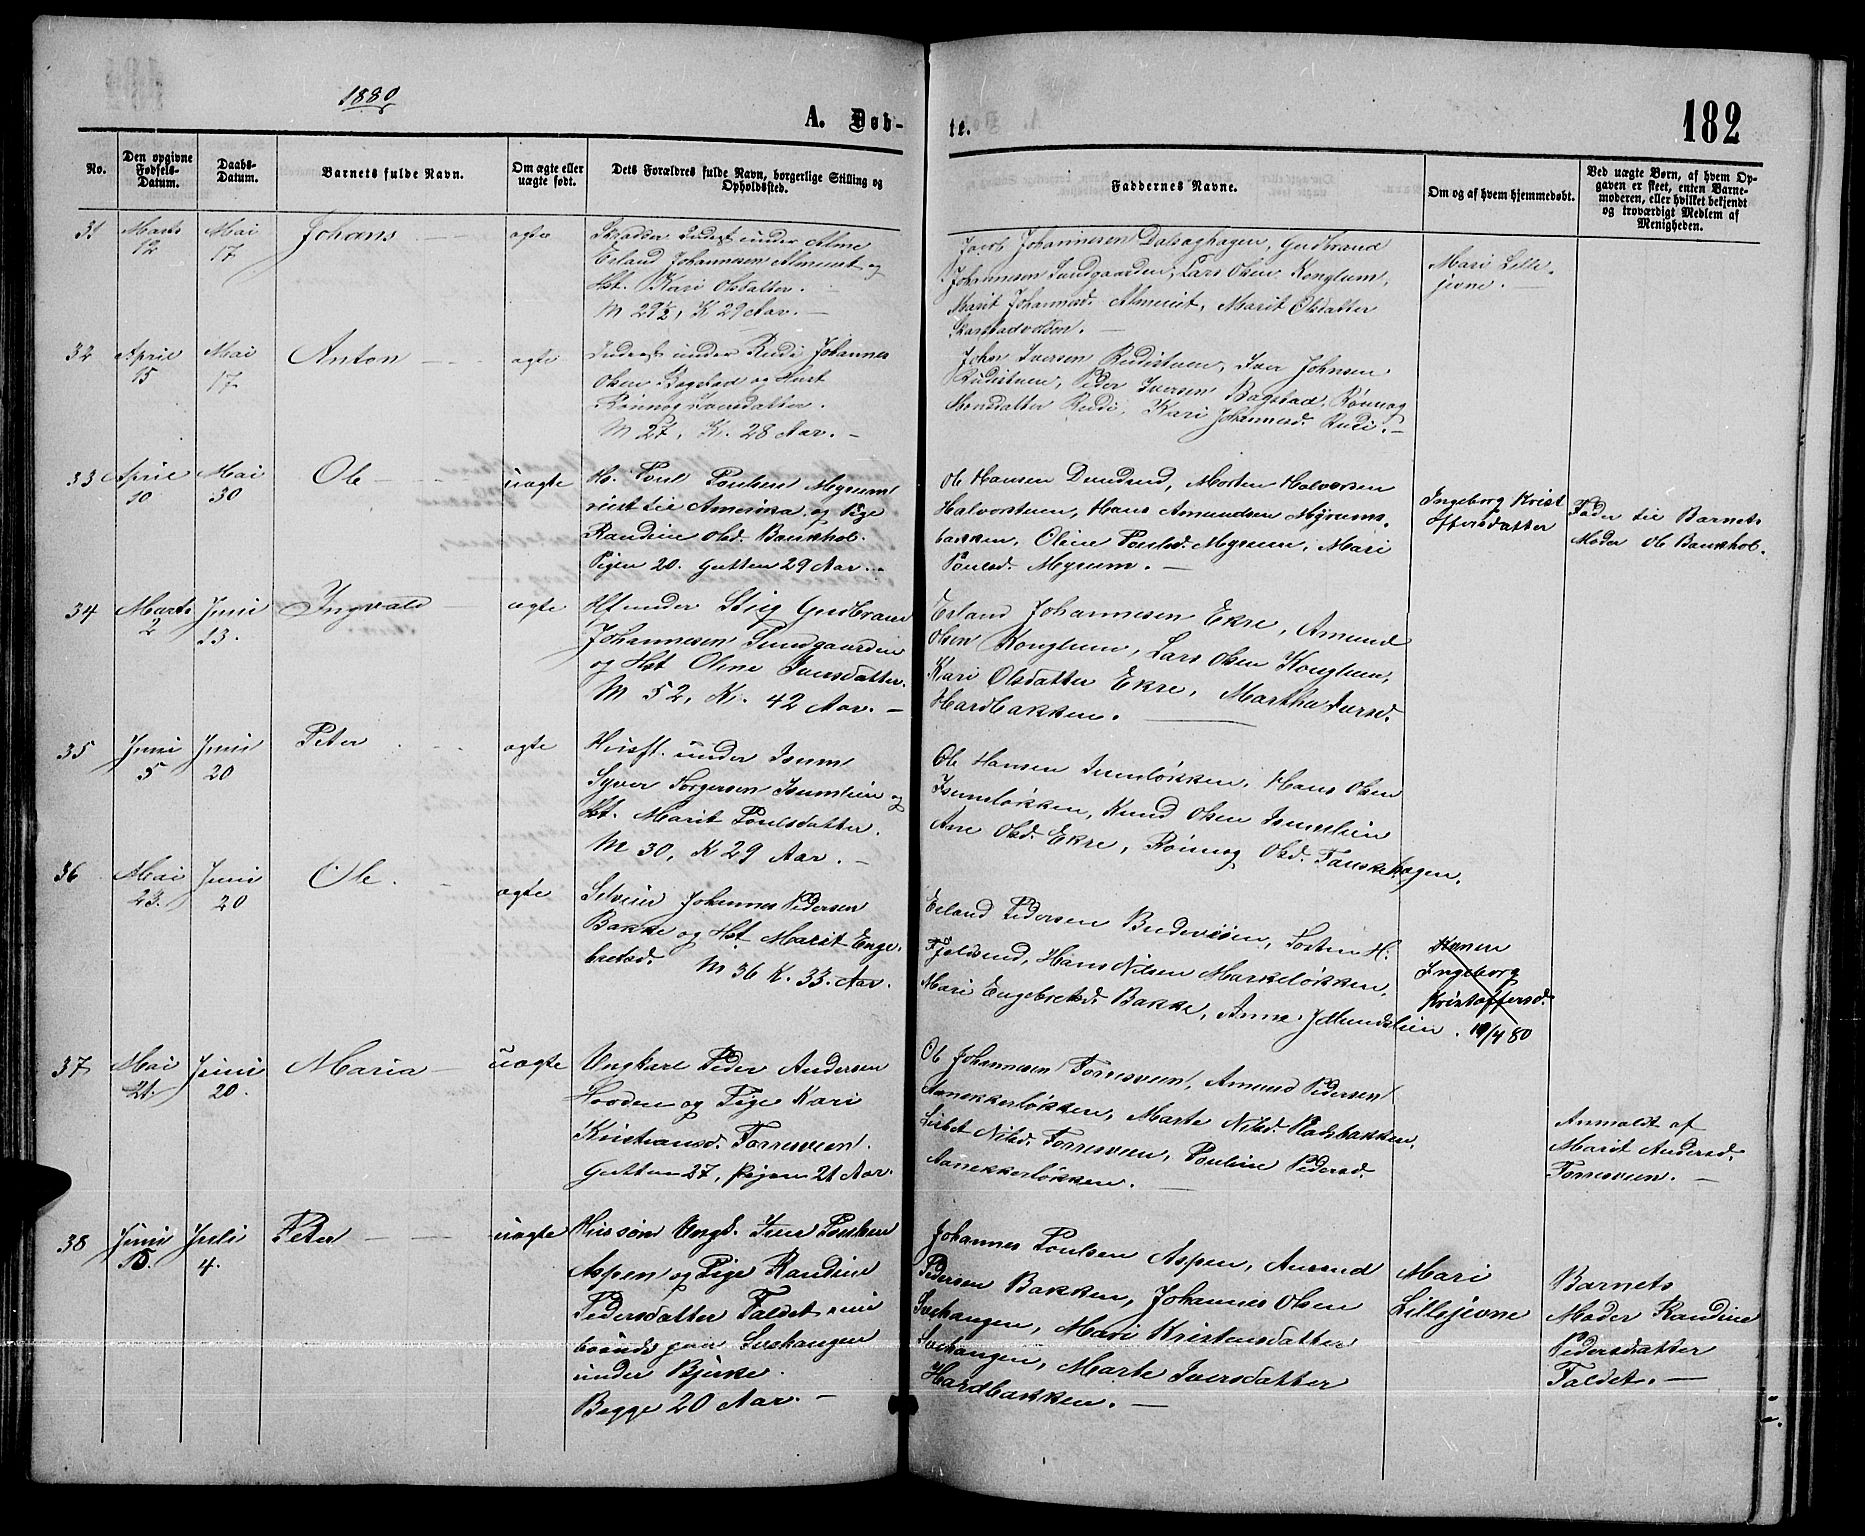 1880
A. Døb-
te.
182
No.
Den opgivne Fødsels-Datum.
Daabs-Datum.
Barnets fulde Navn.
Om ægte eller uægte født.
Dets Forældres fulde Navn, borgerlige Stilling og Opholdssted.
Faddernes Navne.
Om og af hvem hjemmedøbt.
Ved uægte Børn, af hvem Op-
gaven er skeet, enten Barne-
moderen, eller hvilket bekjendt
og troværdigt Medlem af
Menigheden.
31
Marts 12
Mai 17
Johans
ægte
under Alme
Erland Johannesen Almeiet og
Hst. Kari Olsdatter.
M 29½, K 29 Aar. —
Jacob Johannesen Dalsaghagen, Gudbrand
Johannesen Sundgaarden, Lars Olsen Konglum,
Marit Johannesd. Almeiet, Marit Olsdatter
Mari Lille-
jevne. —
32
April 15
Mai 17
Anton
ægte
Inderst under Rudi Johannes
Olsen Bagstad og Hust
Rønnog Iversdatter.
M 27, K. 28 Aar. —
John Iversen Rudistuen, Iver Johnsen
Rudistuen, Peder Iversen Bagstad, Rønnog
Monsdatter Rudi, Kari Johannesd. Rudi. —
33
April 10
Mai 30
Ole
uægte
Poul Poulsen Myrum
reist til Amerika og Pige
Randine Olsd. Baukhol.
Pigen 20. Gutten 29 Aar. —
Ole Hansen Dundsud, Morten Halvorsen
Halvorstuen, Hans Amundsen Myrums-
bakken, Oline Poulsd. Myrum, Mari
Poulsd. Myrum. —
Ingeborg Krist
offersdatter
Fader til Barnets
Moder Ole Baukhol.
34
Marts 2
Juni 13.
Ingvald
ægte
Hf under Stig Gudbrand
Johannesen Sundgaarden
og Hst Oline Iversdatter.
M 52, K. 42 Aar. —
Erland Johannesen Ekre, Amund
Olsen Konglum, Lars Olsen Konglum,
Kari Olsdatter Ekre, Martha Iversd.
Hardbakken.
35
Juni 5
Juni 20
Peter
ægte
Husf. under Isum
Syver Torgersen Isumlien og
Hst. Marit Poulsdatter.
M 30, K 29 Aar. —
Ole Hansen Isumløkken, Hans Olsen
Isumløkken, Knud Olsen Isumlien
Ane Olsd. Ekre, Rønnog Olsd. Fauskehagen.
36
Mai 23.
Juni 20
Ole.
ægte
Selveier Johannes Pedersen
Bakke og Hst Marit Enge-
bretsd. M 36 K. 33. Aar.
Erland Pedersen Budevoien, Torsten H.
Fjeldsend, Hans Nilsen Markeløkken,
Mari Engebretsd. Bakke, Anne J Mundslien.
Konen
Ingeborg
Kristoffersd.
19/4 80
37
Mai 21.
Juni 20.
Maria
uægte
Ungkarl Peder Andersen
Hooden og Pige Kari
Kristiansd. Forresveen.
Gutten 27, Pigen 21 Aar.
Ole Johannesen Forresveen, Amund Pedersen
Aanekkerløkken, Marte Nilsd. Pladsbakken,
Lisbet Nilsd. Forresveen, Pouline Pedersd.
Aanekkerløkken. —
Anmeldt af
Marit Andersd.
Forresveen. —
38
Juni 15.
Juli 4.
Peter
uægte
Hussøn Ungk. Iver Poulsen
Aspen og Pige Randine
Pedersdatter Faldet
paa Svehangen
under Bjerke.
Begge 20 Aar. —
Johannes Poulsen Aspen, Amund
Pedersen Bakken, Johannes Olsen
Svehangen, Mari Kristensdatter
Svehangen, Marte Iversdatter
Hardbakken. —
Mari
Lillejevne
Barnets
Moder Randine
Pedersdatter
Faldet. —